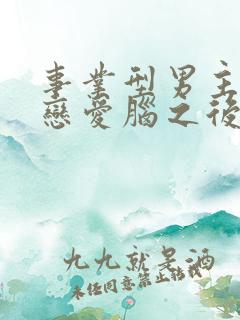 事業型男主
戀愛腦之後
九九就是酒
未經同意禁止轉載